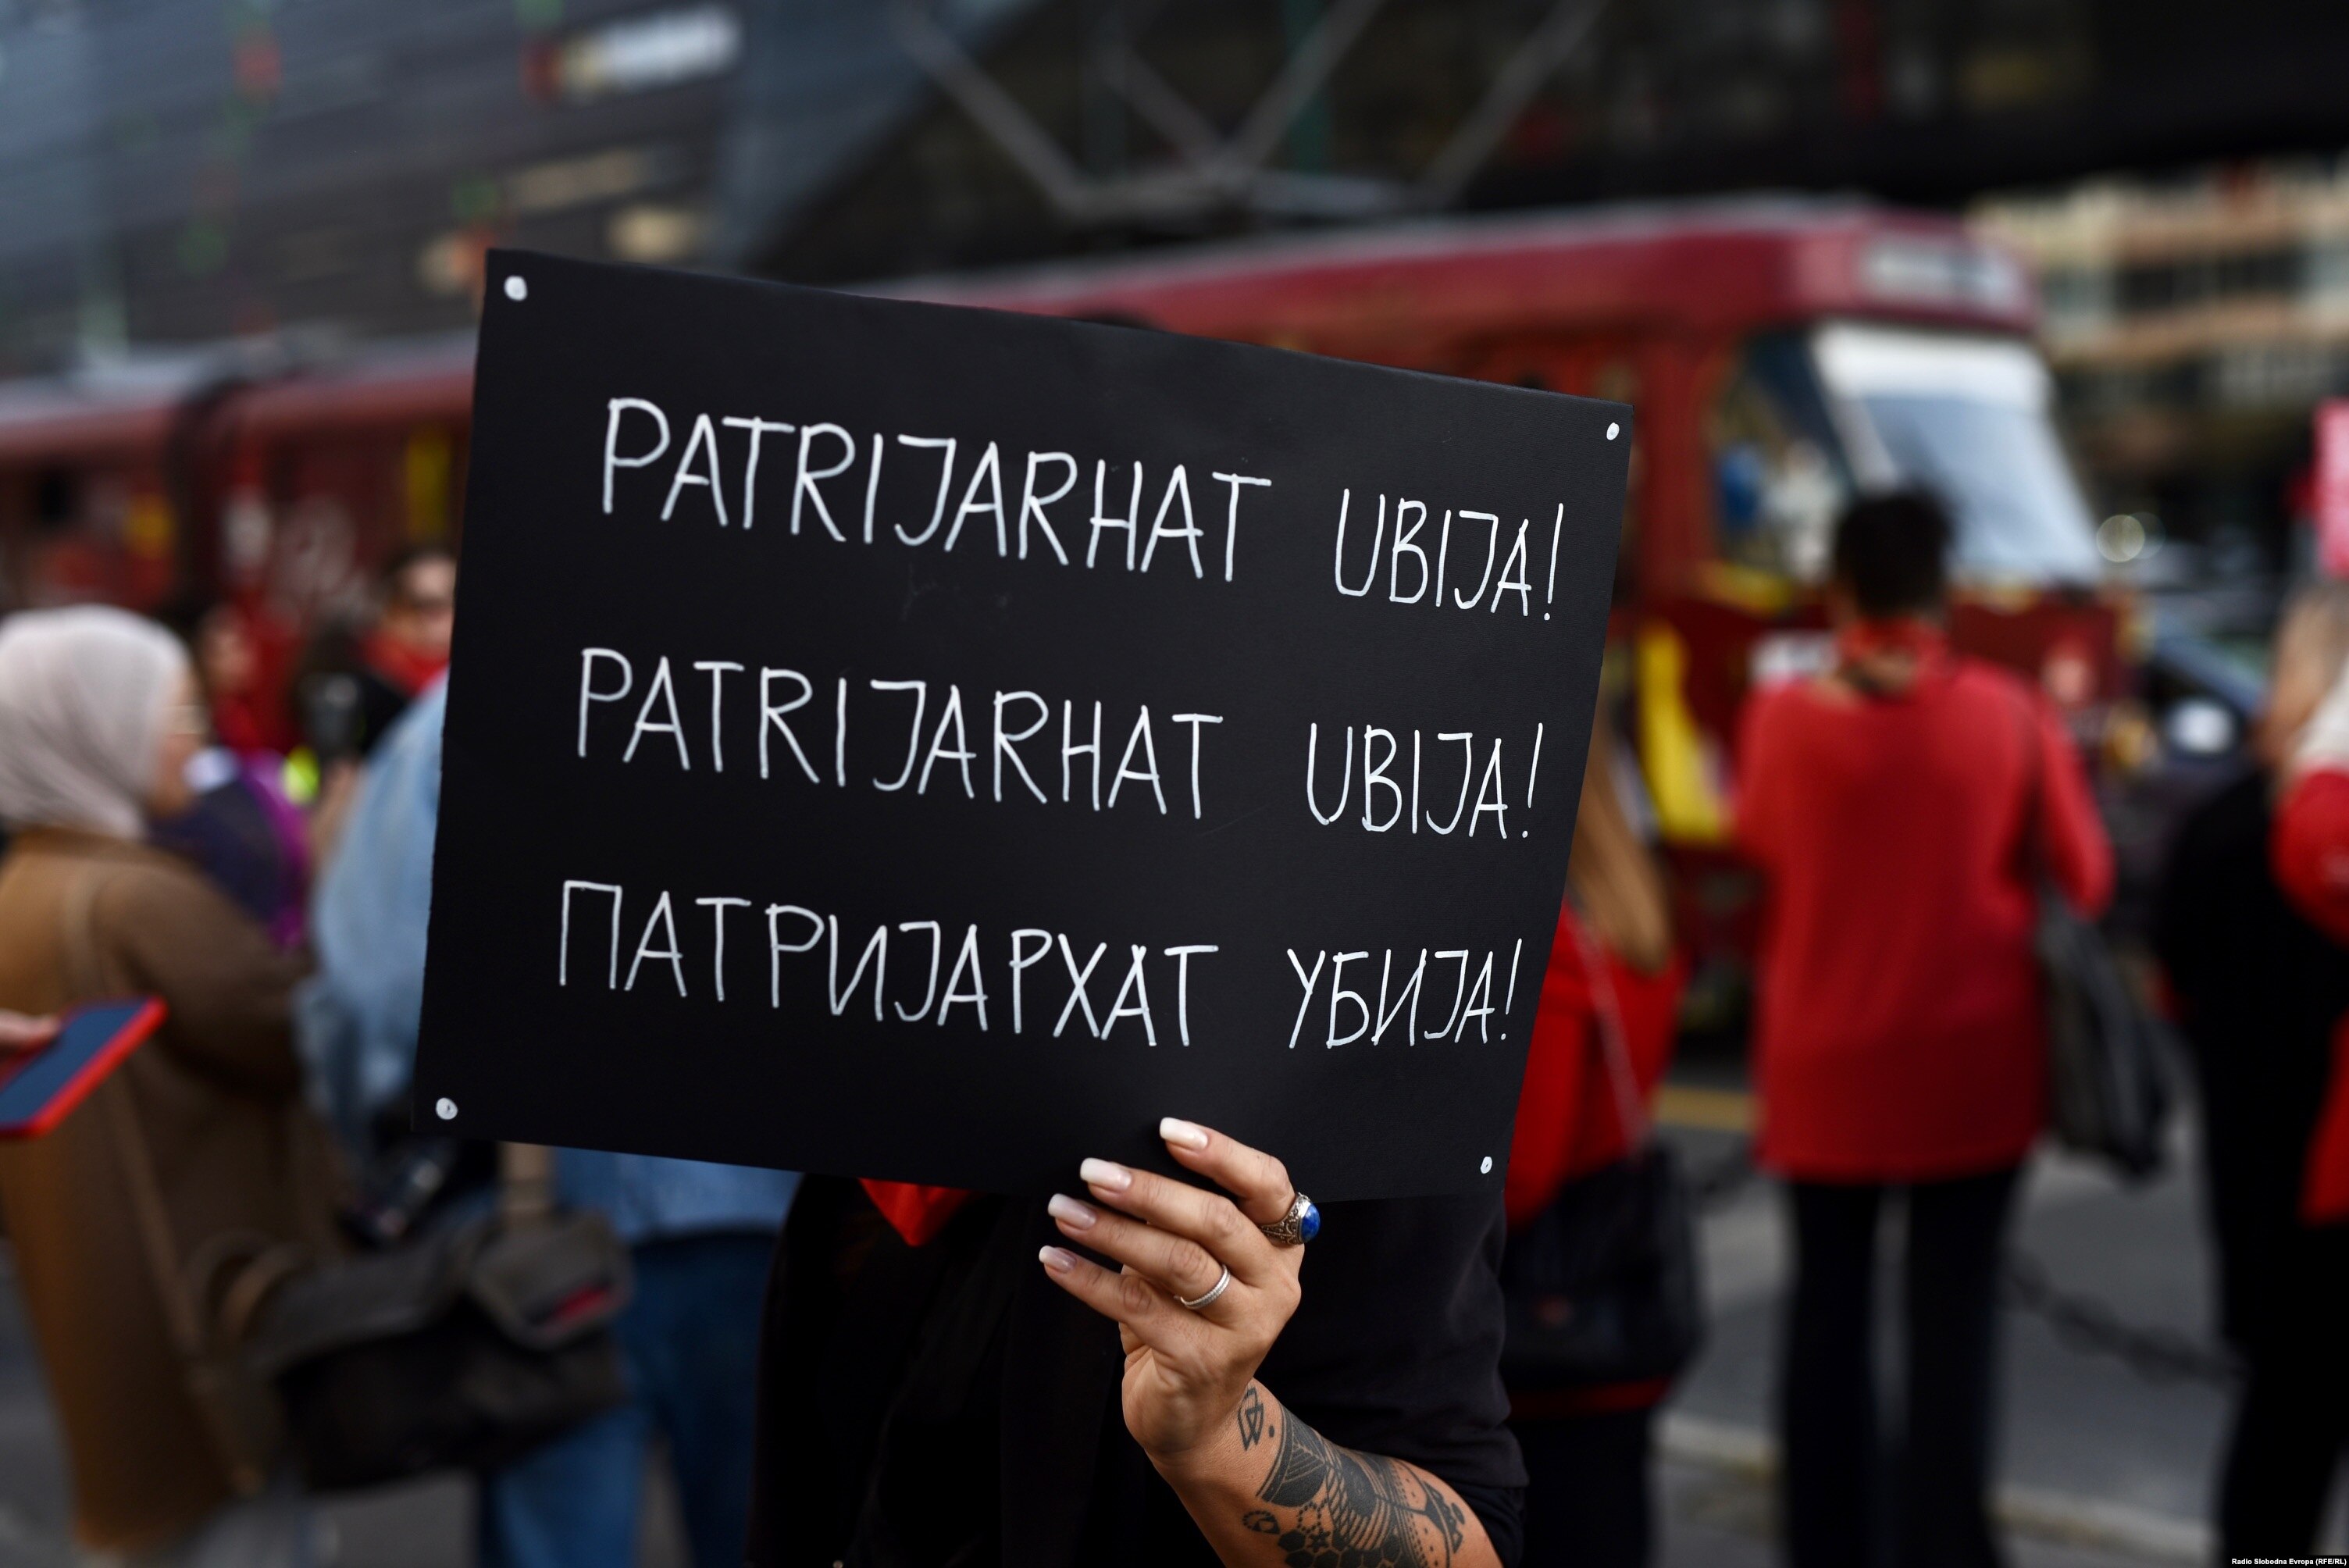 PATRIJARHAT UBIJA!
PATRIJARHAT UBIJA!
ПАТРИЈАРХАТ УБИЈА!
Radio Slobodna Evropa (RFE/RL)